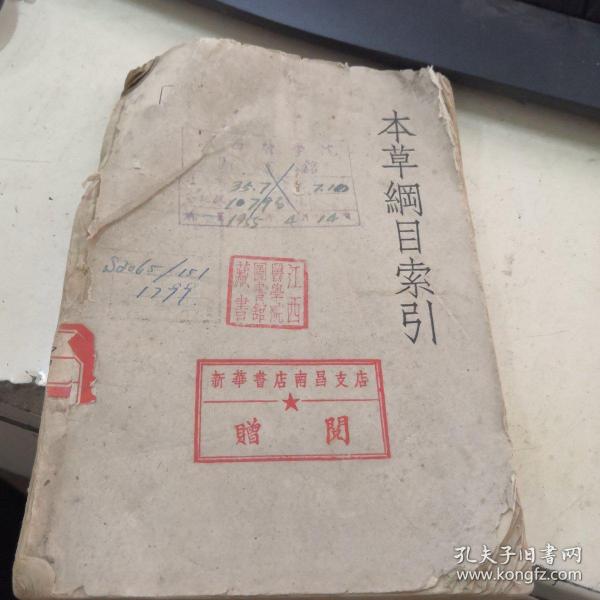 本草綱目索引
35.7
7.10
10798
195 4 14
Sd065/151
1799
江西
醫學院
圖書館
藏書
新華書店南昌支店
贈閱
孔夫子旧书网
www.kongfz.com